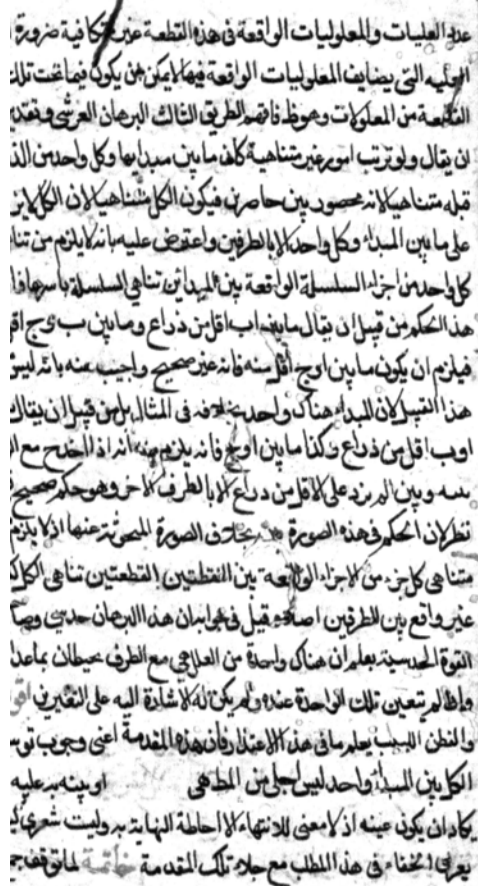 عدد العليات والمعلوليات الواقعة فى هذه القطعة غير متكافية ضرورة
العليه التى يضايف المعلوليات الواقعة فيها لايمكن ان يكون فيما تحت تلك
القطعة من المعلولات وهو ظ فافهم الطريق الثالث البرهان العرشى وتقديره
ان يقال ولو ترتب امور غير متناهية كان ما بين مبدأها وكل واحد من الذى
قبله متناهيا لانه محصور بين حاصرين فيكون الكل متناهيا لان الكل لايزيد
على ما بين المبداء وكل واحد الا بالطرفين واعترض عليه بانه لايلزم من تناهى
كل واحد من اجزاء السلسلة الواقعة بين المبدائين تناهى السلسلة باسرها
هذا الحكم من قبيل ان يقال ما بين اب اقل من ذراع وما بين ب ج اقل
فيلزم ان يكون ما بين ا و ج اقل منه فانه غير صحيح واجيب عنه بانه ليس
هذا القبيل لان المبداء هناك واحد بخلافه فى المثال بل من قبيل ان يقال
ا وب اقل من ذراع وكذا ما بين ا وج فانه يلزم منه انه اذا مع
بينه وبين الم يزد على الاقل من ذراع الا بالطرف الاخر وهو حكم صحيح
نظر لان الحكم فى هذه الصورة بخلاف الصورة المبحوثة عنها اذ لايلزم
متناهى كل جزء من الاجزاء الواقعه بين النقطتين القطعتين تناهى الكل
غير واقع بين الطرفين اصلا قيل فى جوابه ان هذا البرهان حدسى وصاحب
القوة الحدسية يعلم ان هناك واحدة من العلل هى مع الطرف محيطان بماعدا
وان لم يتعين تلك الواحدة عنده ولم يكن له الاشارة اليه على التعيين
والفطن اللبيب يعلم ما فى هذا الاعتذار فان هذه المقدمة اعنى وجوب
الكل بين المبداء واحد ليس اجلى من المط هى او بينه به عليه
يكاد ان يكون عينه اذ لامعنى للانتهاء الا احاطة النهاية به وليت شعرى
يعرف الخفاء فى هذا المطلب مع جلاء تلك المقدمة خاتمة لما توقف